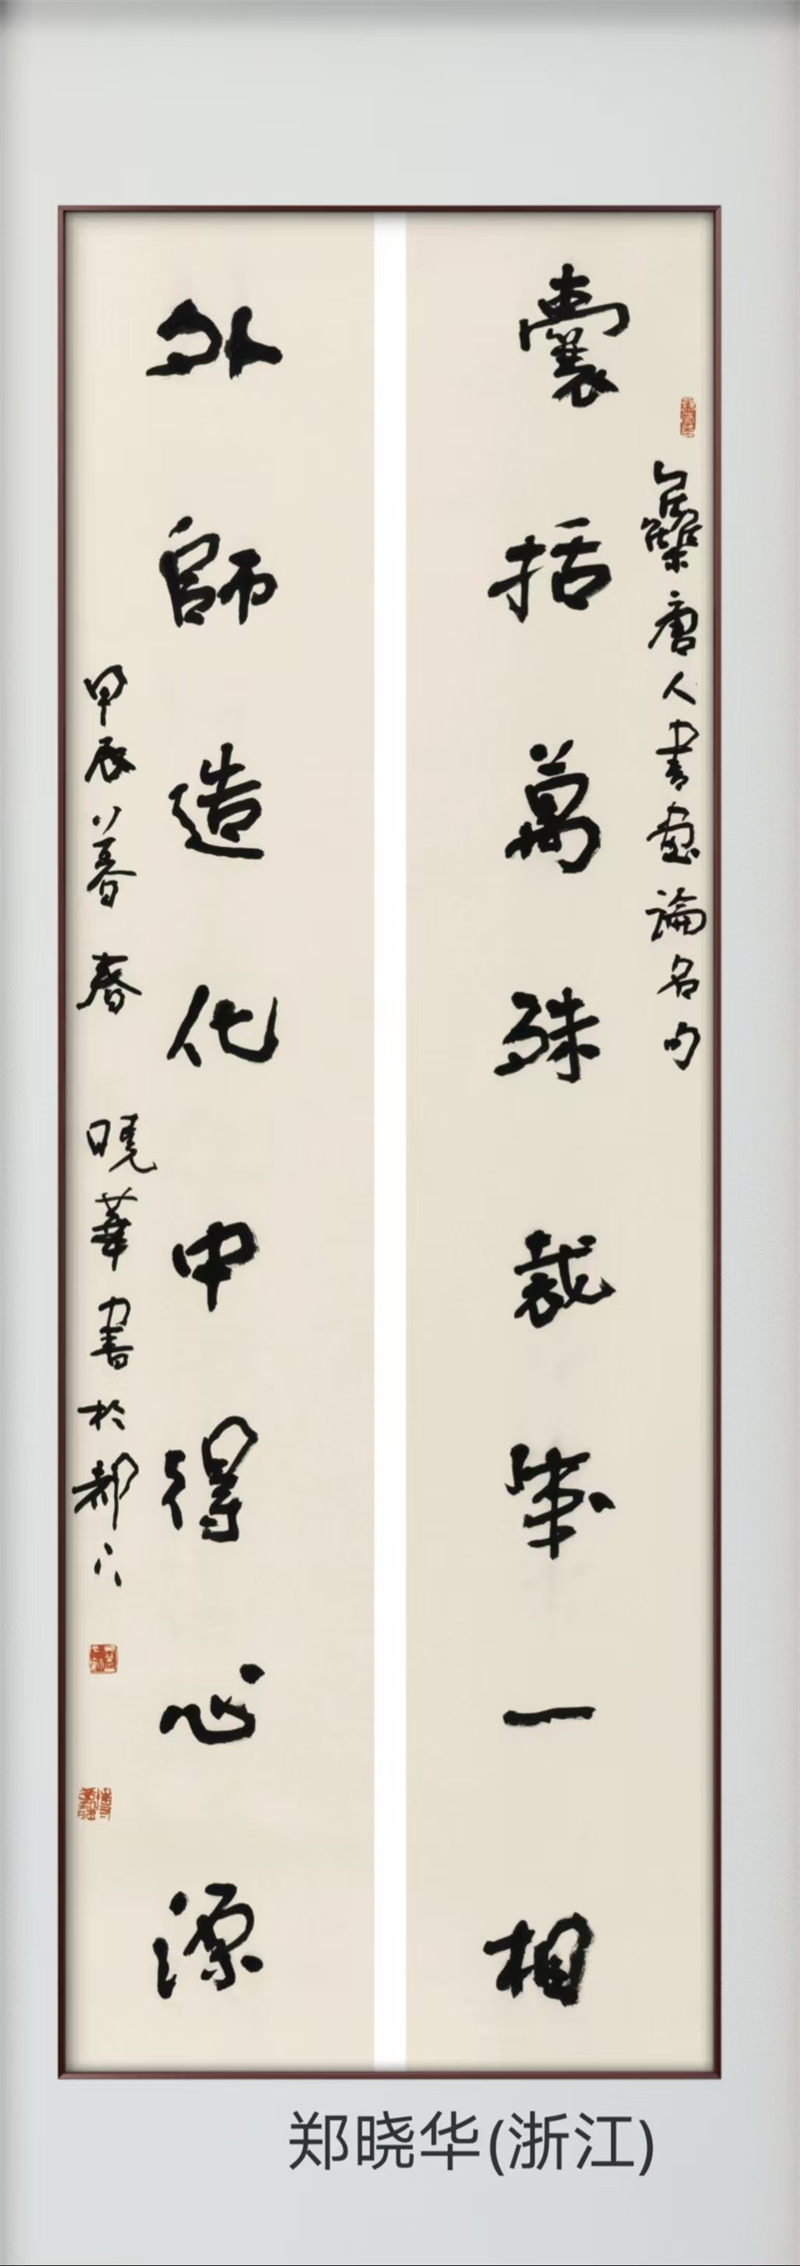 囊括萬殊裁成一相
集唐人書畫論名句
外師造化中得心源
甲辰暮春 曉華書於都門
郑晓华(浙江)